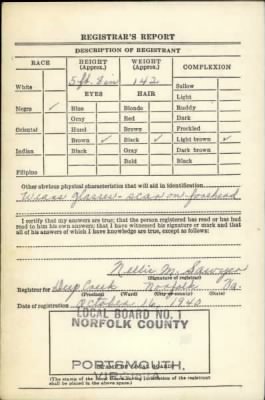 REGISTRAR'S REPORT
DESCRIPTION OF REGISTRANT
RACE HEIGHT (Approx.) WEIGHT (Approx.) COMPLEXION
5 ft. 8 in 142
White Sallow
EYES HAIR Light
Negro ✓ Blue Blonde Ruddy
Gray Red Dark
Oriental Hazel Brown Freckled
Brown ✓ Black ✓ Light brown ✓
Indian Black Gray Dark brown
Bald Black
Filipino
Other obvious physical characteristics that will aid in identification
Wears glasses - scar on forehead
I certify that my answers are true; that the person registered has read or has had
read to him his own answers; that I have witnessed his signature or mark and that
all of his answers of which I have knowledge are true, except as follows:
Nellie M. Sawyer
(Signature of registrar)
Registrar for Deep Creek Norfolk Va.
(Precinct) (Ward) (City or county) (State)
Date of registration October 16, 1940
LOCAL BOARD NO. 1
NORFOLK COUNTY
PORTSMOUTH,
VIRGINIA
(STAMP OF LOCAL BOARD)
(The stamp of the Local Board having jurisdiction of the registrant
shall be placed in the above space.)